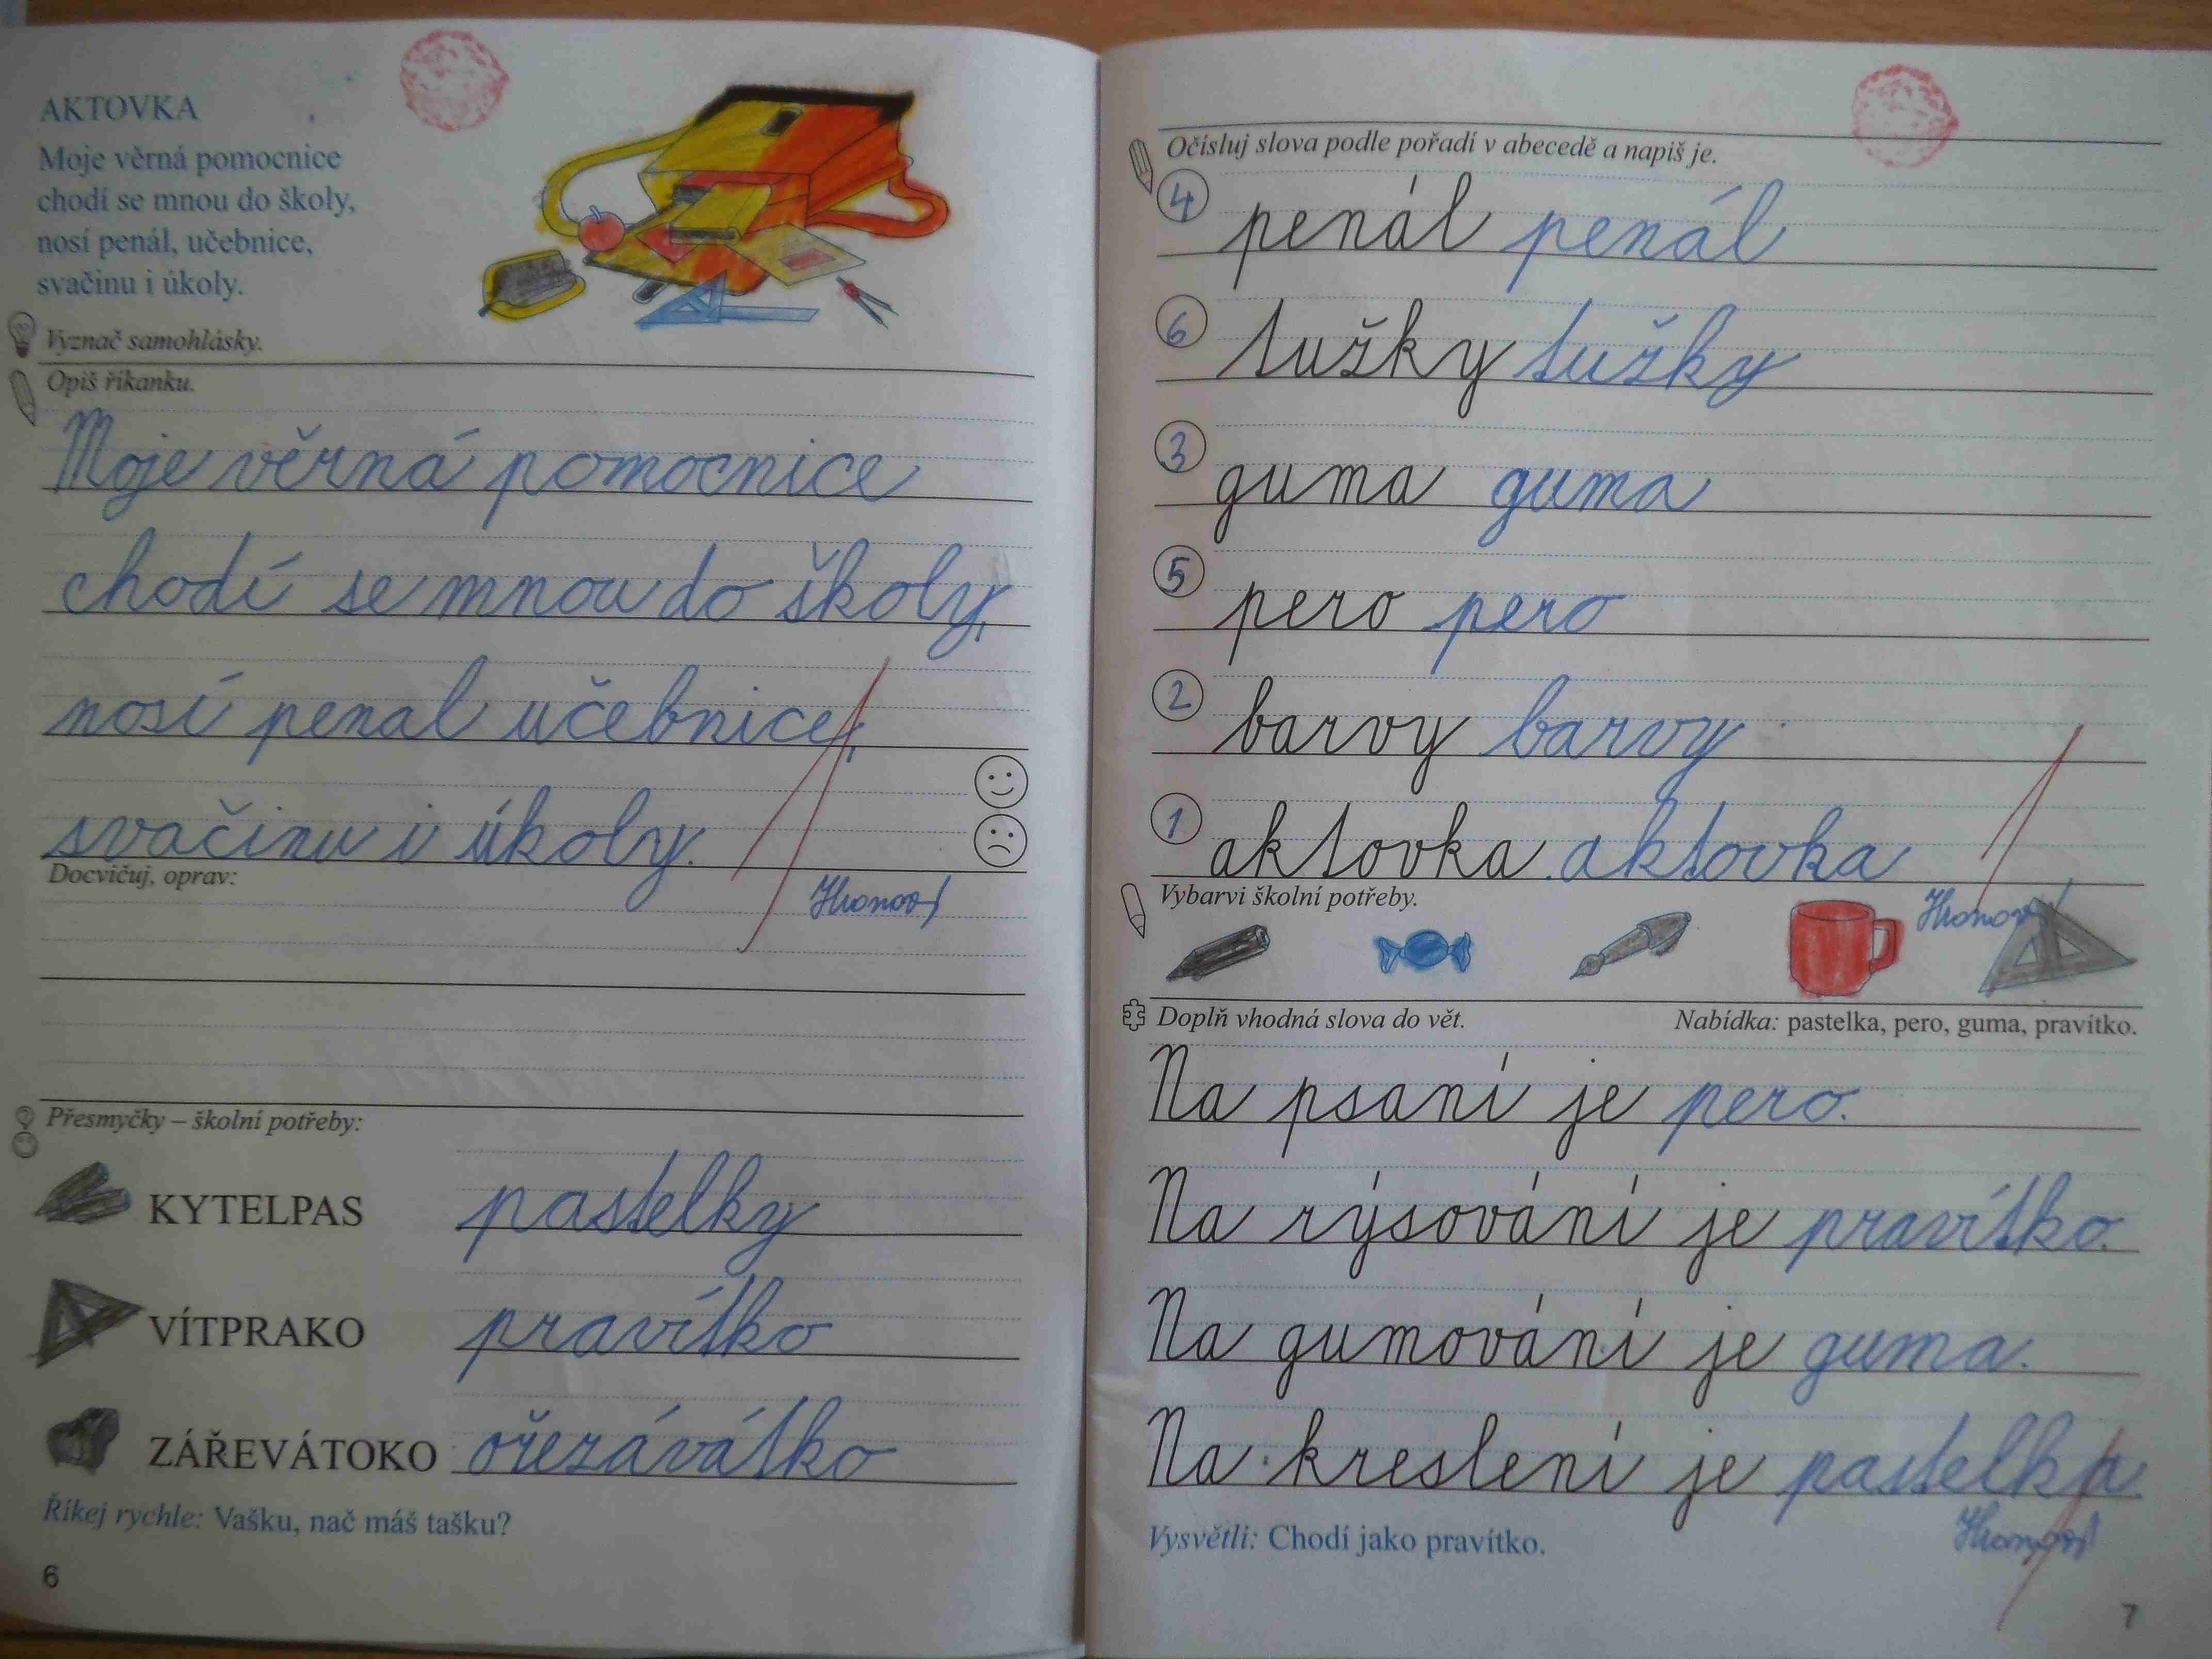 AKTOVKA
Moje věrná pomocnice
chodí se mnou do školy,
nosí penál, učebnice,
svačinu i úkoly.
Vyznač samohlásky.
Opiš říkanku.
Moje věrná pomocnice
chodí se mnou do školy,
nosí penal učebnice,
svačinu i úkoly.
Docvičuj, oprav:
Přesmyčky – školní potřeby:
KYTELPAS pastelky
VÍTPRAKO pravítko
ZÁŘEVÁTOKO ořezávátko
Říkej rychle: Vašku, nač máš tašku?
6
Očísluj slova podle pořadí v abecedě a napiš je.
4 penál penál
6 tužky tužky
3 guma guma
5 pero pero
2 barvy barvy
1 aktovka aktovka
Vybarvi školní potřeby.
Doplň vhodná slova do vět. Nabídka: pastelka, pero, guma, pravítko.
Na psaní je pero.
Na rýsování je pravítko.
Na gumování je guma.
Na kreslení je pastelka.
Vysvětli: Chodí jako pravítko.
7